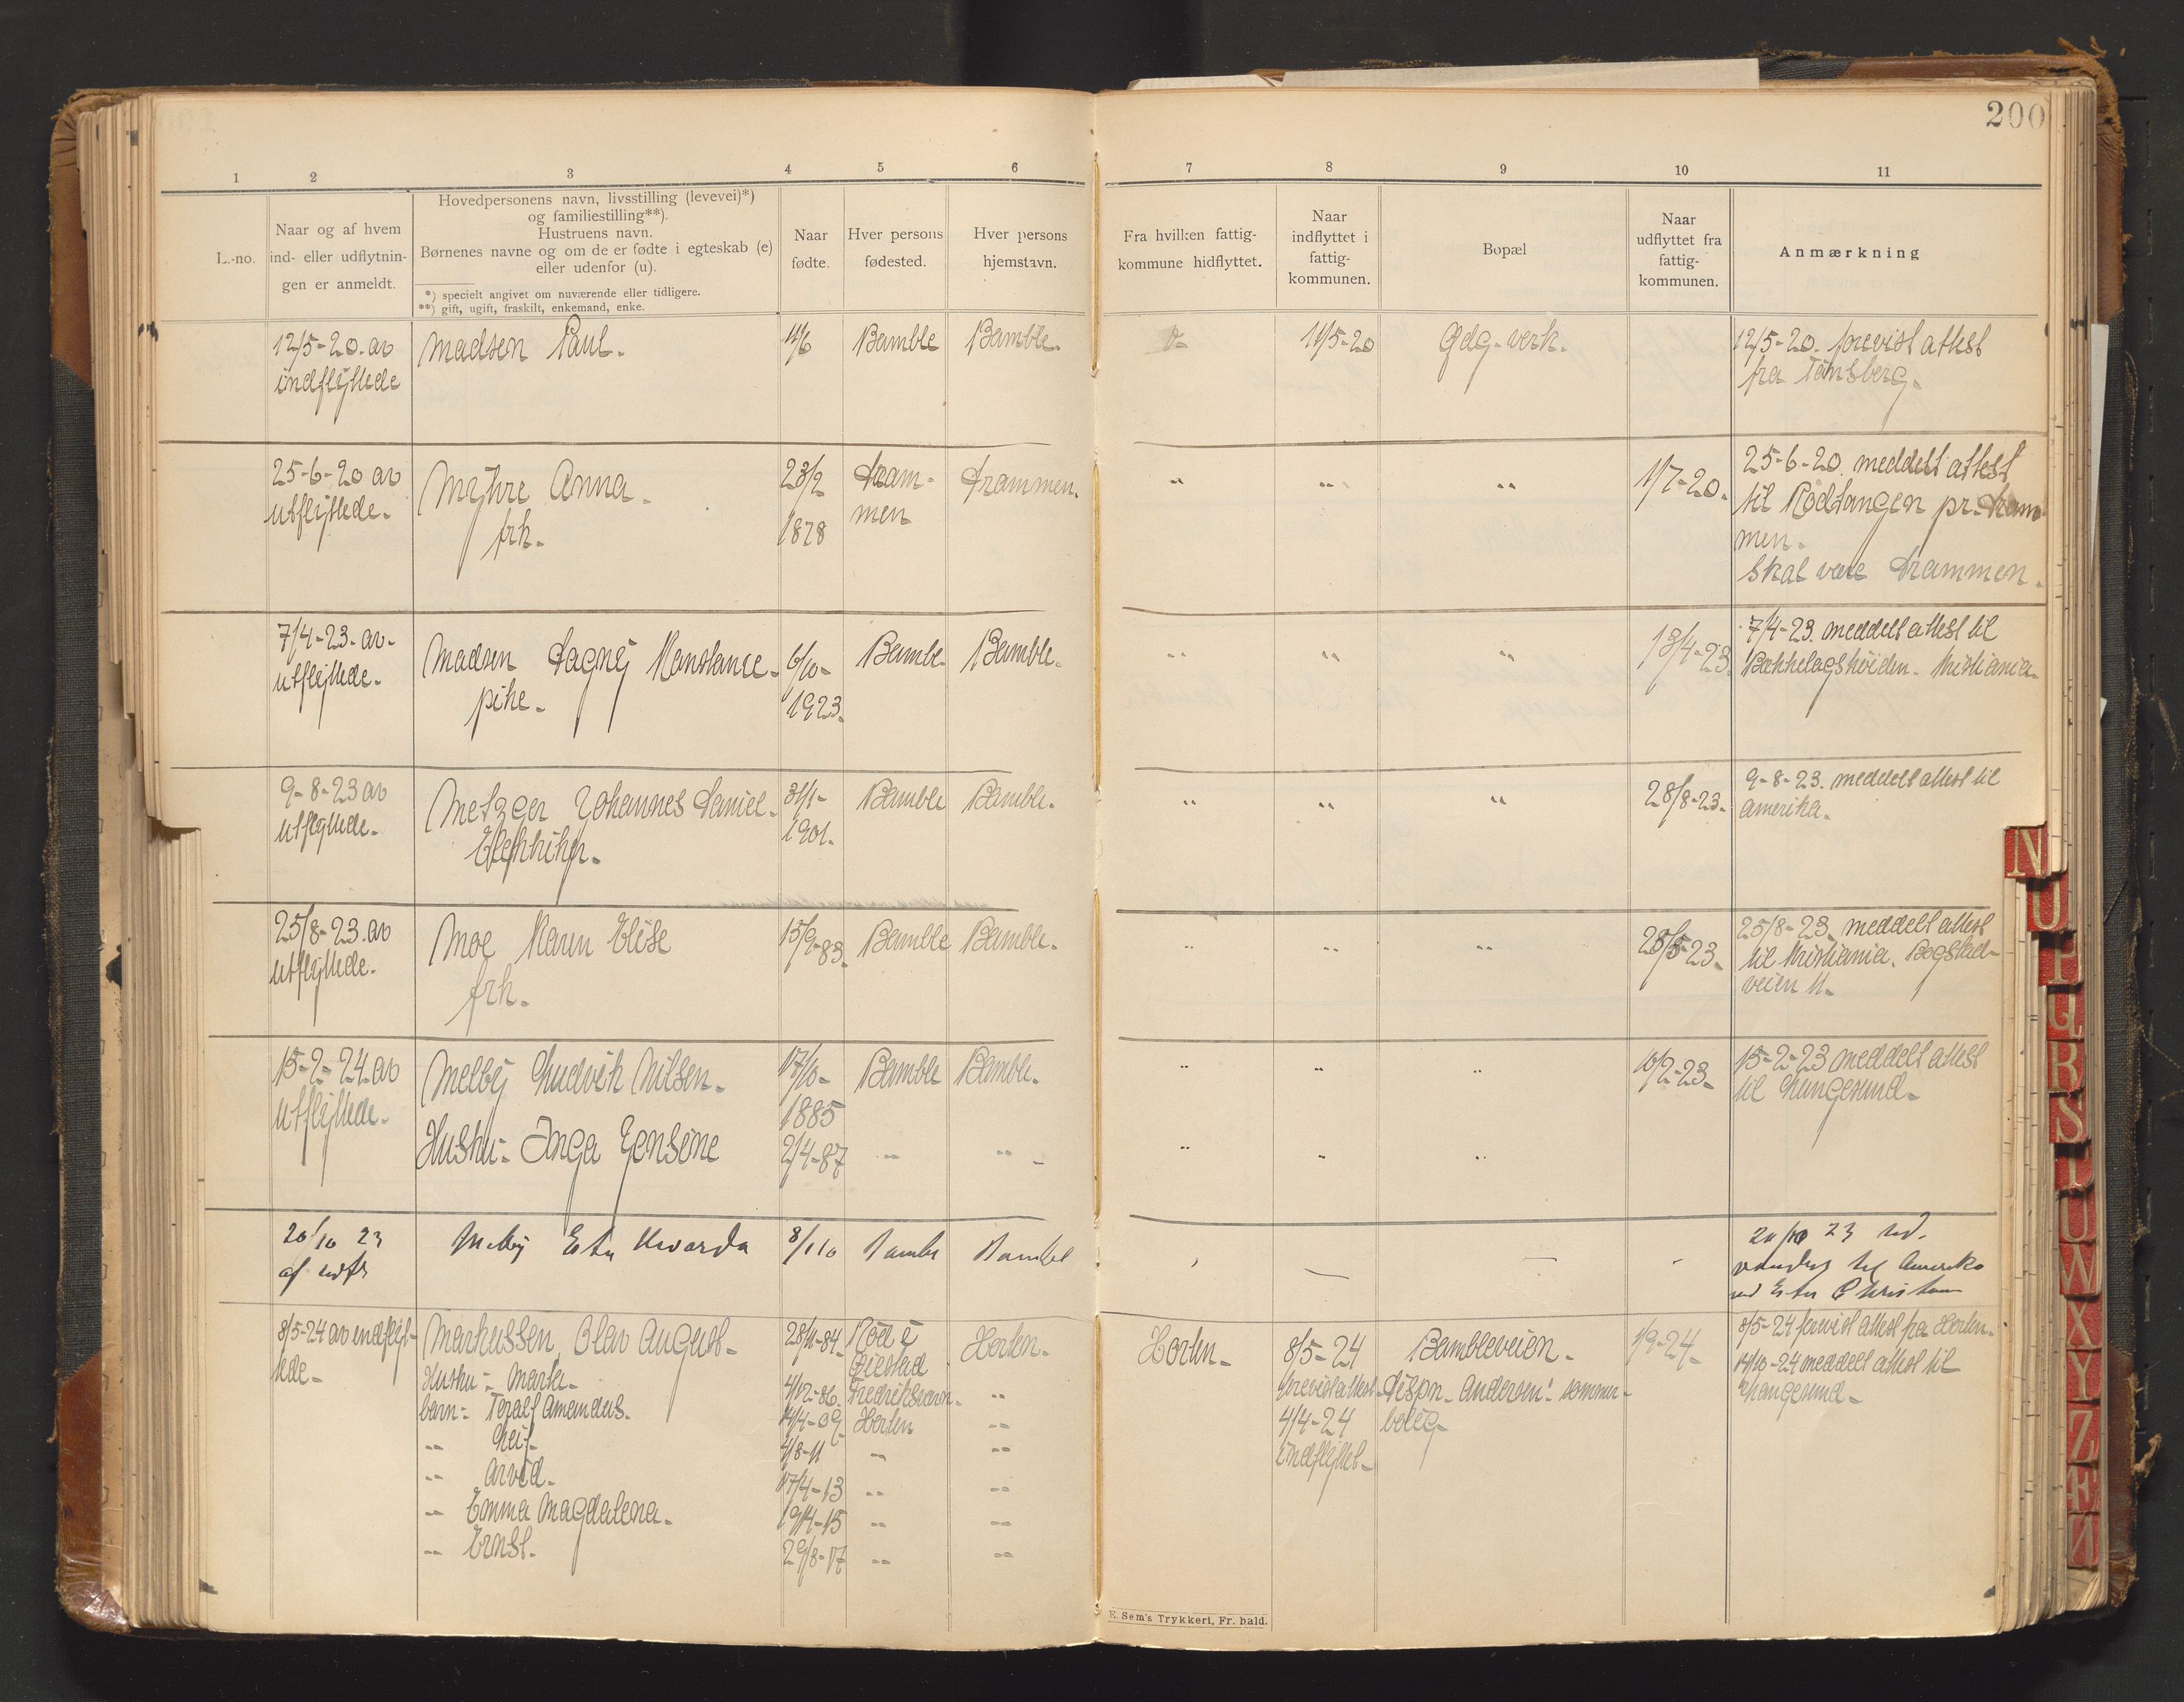 200
1 2 3 4 5 6 7 8 9 10 11
L.-no.
Naar og af hvem
ind- eller udflytnin-
gen er anmeldt.
Hovedpersonens navn, livsstilling (levevei)*)
og familiestilling**).
Hustruens navn.
Børnenes navne og om de er fødte i egteskab (e)
eller udenfor (u).
*) specielt angivet om nuværende eller tidligere.
**) gift, ugift, fraskilt, enkemand, enke.
Naar
fødte.
Hver persons
fødested.
Hver persons
hjemstavn.
Fra hvilken fattig-
kommune hidflyttet.
Naar
indflyttet i
fattig-
kommunen.
Bopæl
Naar
udflyttet fra
fattig-
kommunen.
Anmærkning
12/5-20. av
indflyttede
Madsen Paul.
Bamble
Bamble.
11/5-20
Gdg. verk.
12/5-20. forevist attest
fra Tønsberg.
25-6-20 av
utflyttede.
Myhre Anna.
frk.
23/2
1878
Dram-
men
Drammen.
" " "
1/7-20.
25-6-20. meddelt attest
til Rødtangen pr. Dram-
men.
Skal være Drammen.
7/4-23. av.
utflyttede.
Madsen Dagny Konstance.
pike.
6/10-
1923.
Bamble.
Bamble.
" " "
13/4-23.
7/4-23. meddelt attest til
Bækkelagshøiden. Kristiania.
9-8-23 av
utflyttede.
Metzger Johannes Daniel.
Elektriker.
31/1-
1901.
Bamble
Bamble.
" " "
28/8-23.
9-8-23. meddelt attest til
Amerika.
25/8-23. av
utflyttede.
Moe Karin Elise
frk.
15/9-83.
Bamble
Bamble.
" " "
25/8-23. meddelt attest
til Kristiania. Bogstad-
veien 11.
15-2-24. av
utflyttede.
Melby Ludvik Nilsen.
17/10-
1885
Bamble
Bamble.
" " "
10/2-23.
15-2-23 meddelt attest
til Langesund.
Hustru: Inga Jensine
2/4-87
" "
" " "
20/10 23
af udfl
Melby Kvarda
8/1 10
Bamble
Bambel
20/10 23 ud.
vandret til Amerika
8/5-24 av indflyt-
tede.
Markussen, Olav August.
28/11-84.
Røed i
Øiestad
Horten.
Horten.
8/5-24
Bambleveien.
1/9-24.
8/5-24 forevist attest fra Horten.
14/10-24 meddelt attest til
Langesund.
Hustru: Marta.
4/12-86.
Fredriksvern.
"
forevist attest.
Disp. Andersen's sommer-
barn: Toralf Amandus.
14/4-09
Horten
"
4/4-24
bolig.
" Leif
4/8-11
" "
indflyttet.
" Arvid.
17/4-13
" "
" Emma Magdalena.
19/4-15
" "
" Ernst.
29/8-17
" "
E. Sem's Trykkeri, Fr. hald.
N
O
P
Q
R
S
T
U
W
X
Y
Z
Æ
Ø